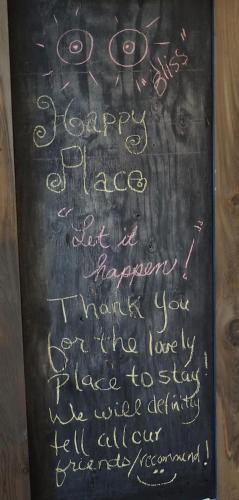 "Bliss"
Happy
Place
"Let it
happen!"
Thank You
for the lovely
Place to stay!
We will definitly
tell all our
friends/recommend!